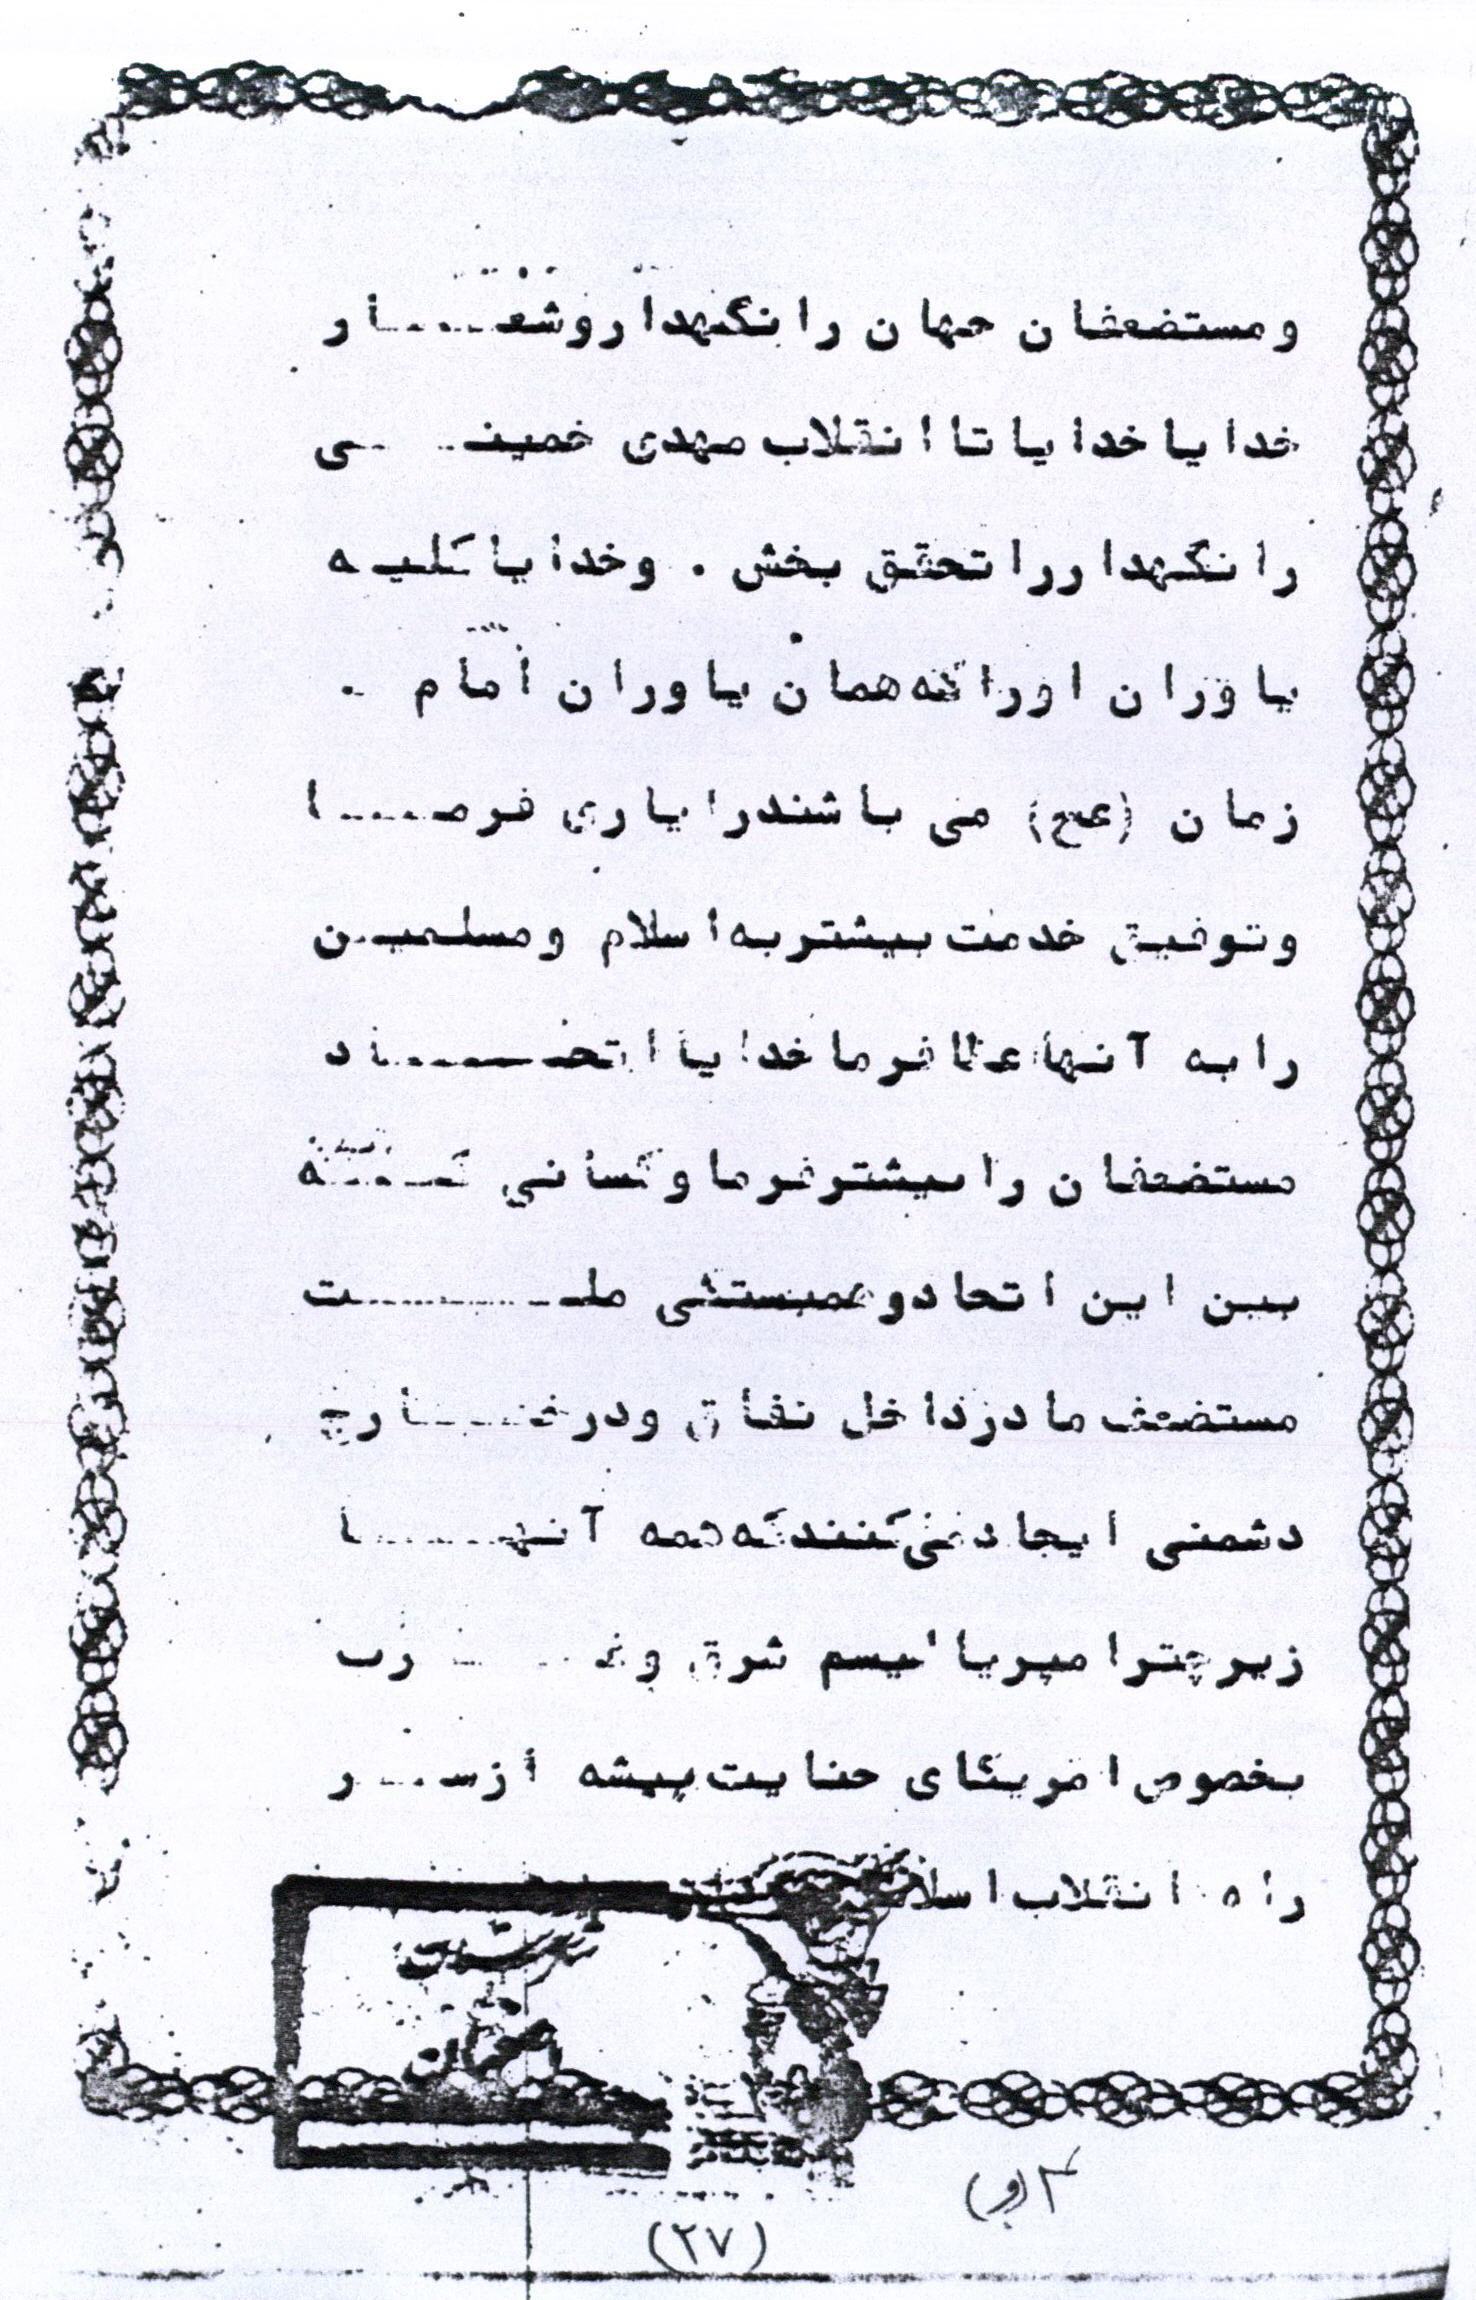 ومستضعفان جهان را نگهدار وشعار
خدایا خدایا تا انقلاب مهدی خمینی
را نگهدار را تحقق بخش . وخدایا کلیه
یاوران اورا که همان یاوران امام
زمان (عج) می باشند را یاری فرما
وتوفیق خدمت بیشتر به اسلام ومسلمین
را به آنها عطا فرما خدایا اتحاد
مستضعفان را بیشتر فرما وکسانی که
بین این اتحاد وهمبستگی ملت
مستضعف ما در داخل نفاق ودر خارج
دشمنی ایجاد می کنند که همه آنها
زیر چتر امپریالیسم شرق وغرب
بخصوص امریکای جنایت پیشه از سر
راه انقلاب
(۲۷)